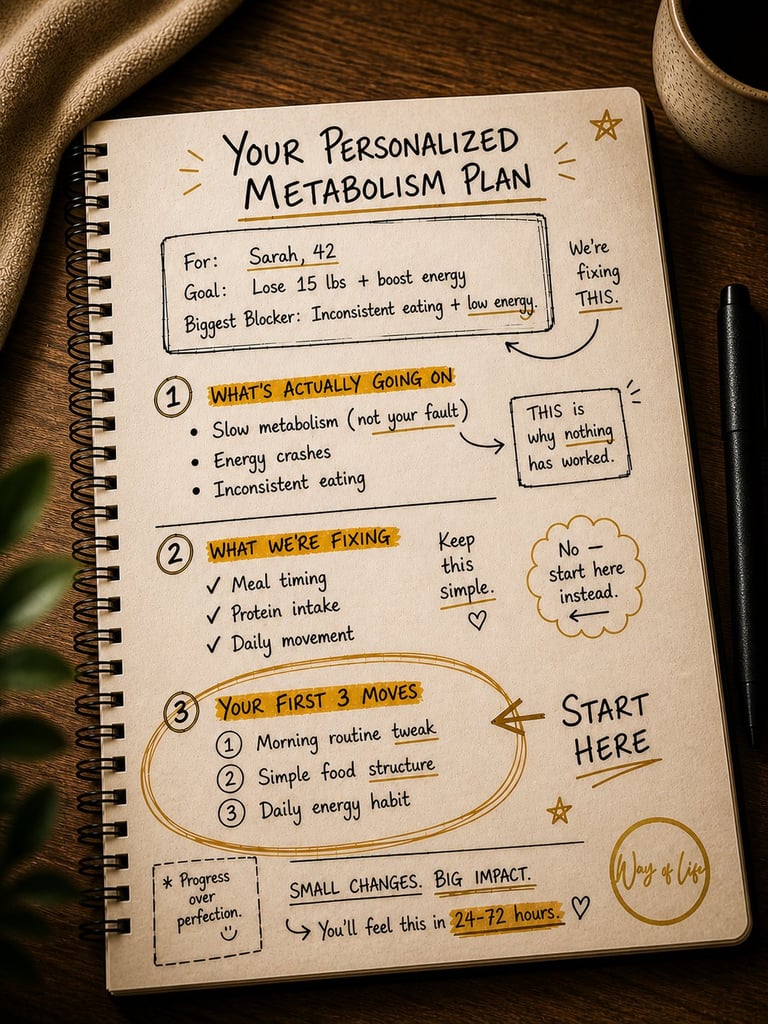 YOUR PERSONALIZED
METABOLISM PLAN
For: Sarah, 42
Goal: Lose 15 lbs + boost energy
Biggest Blocker: Inconsistent eating + low energy.
We're
fixing
THIS.
1 WHAT'S ACTUALLY GOING ON
• Slow metabolism (not your fault)
• Energy crashes
• Inconsistent eating
THIS is
why nothing
has worked.
2 WHAT WE'RE FIXING
✓ Meal timing
✓ Protein intake
✓ Daily movement
Keep
this
simple.
No —
start here
instead.
3 YOUR FIRST 3 MOVES
1 Morning routine tweak
2 Simple food structure
3 Daily energy habit
START
HERE
* Progress
over
perfection.
SMALL CHANGES. BIG IMPACT.
You'll feel this in 24–72 hours.
Way of Life